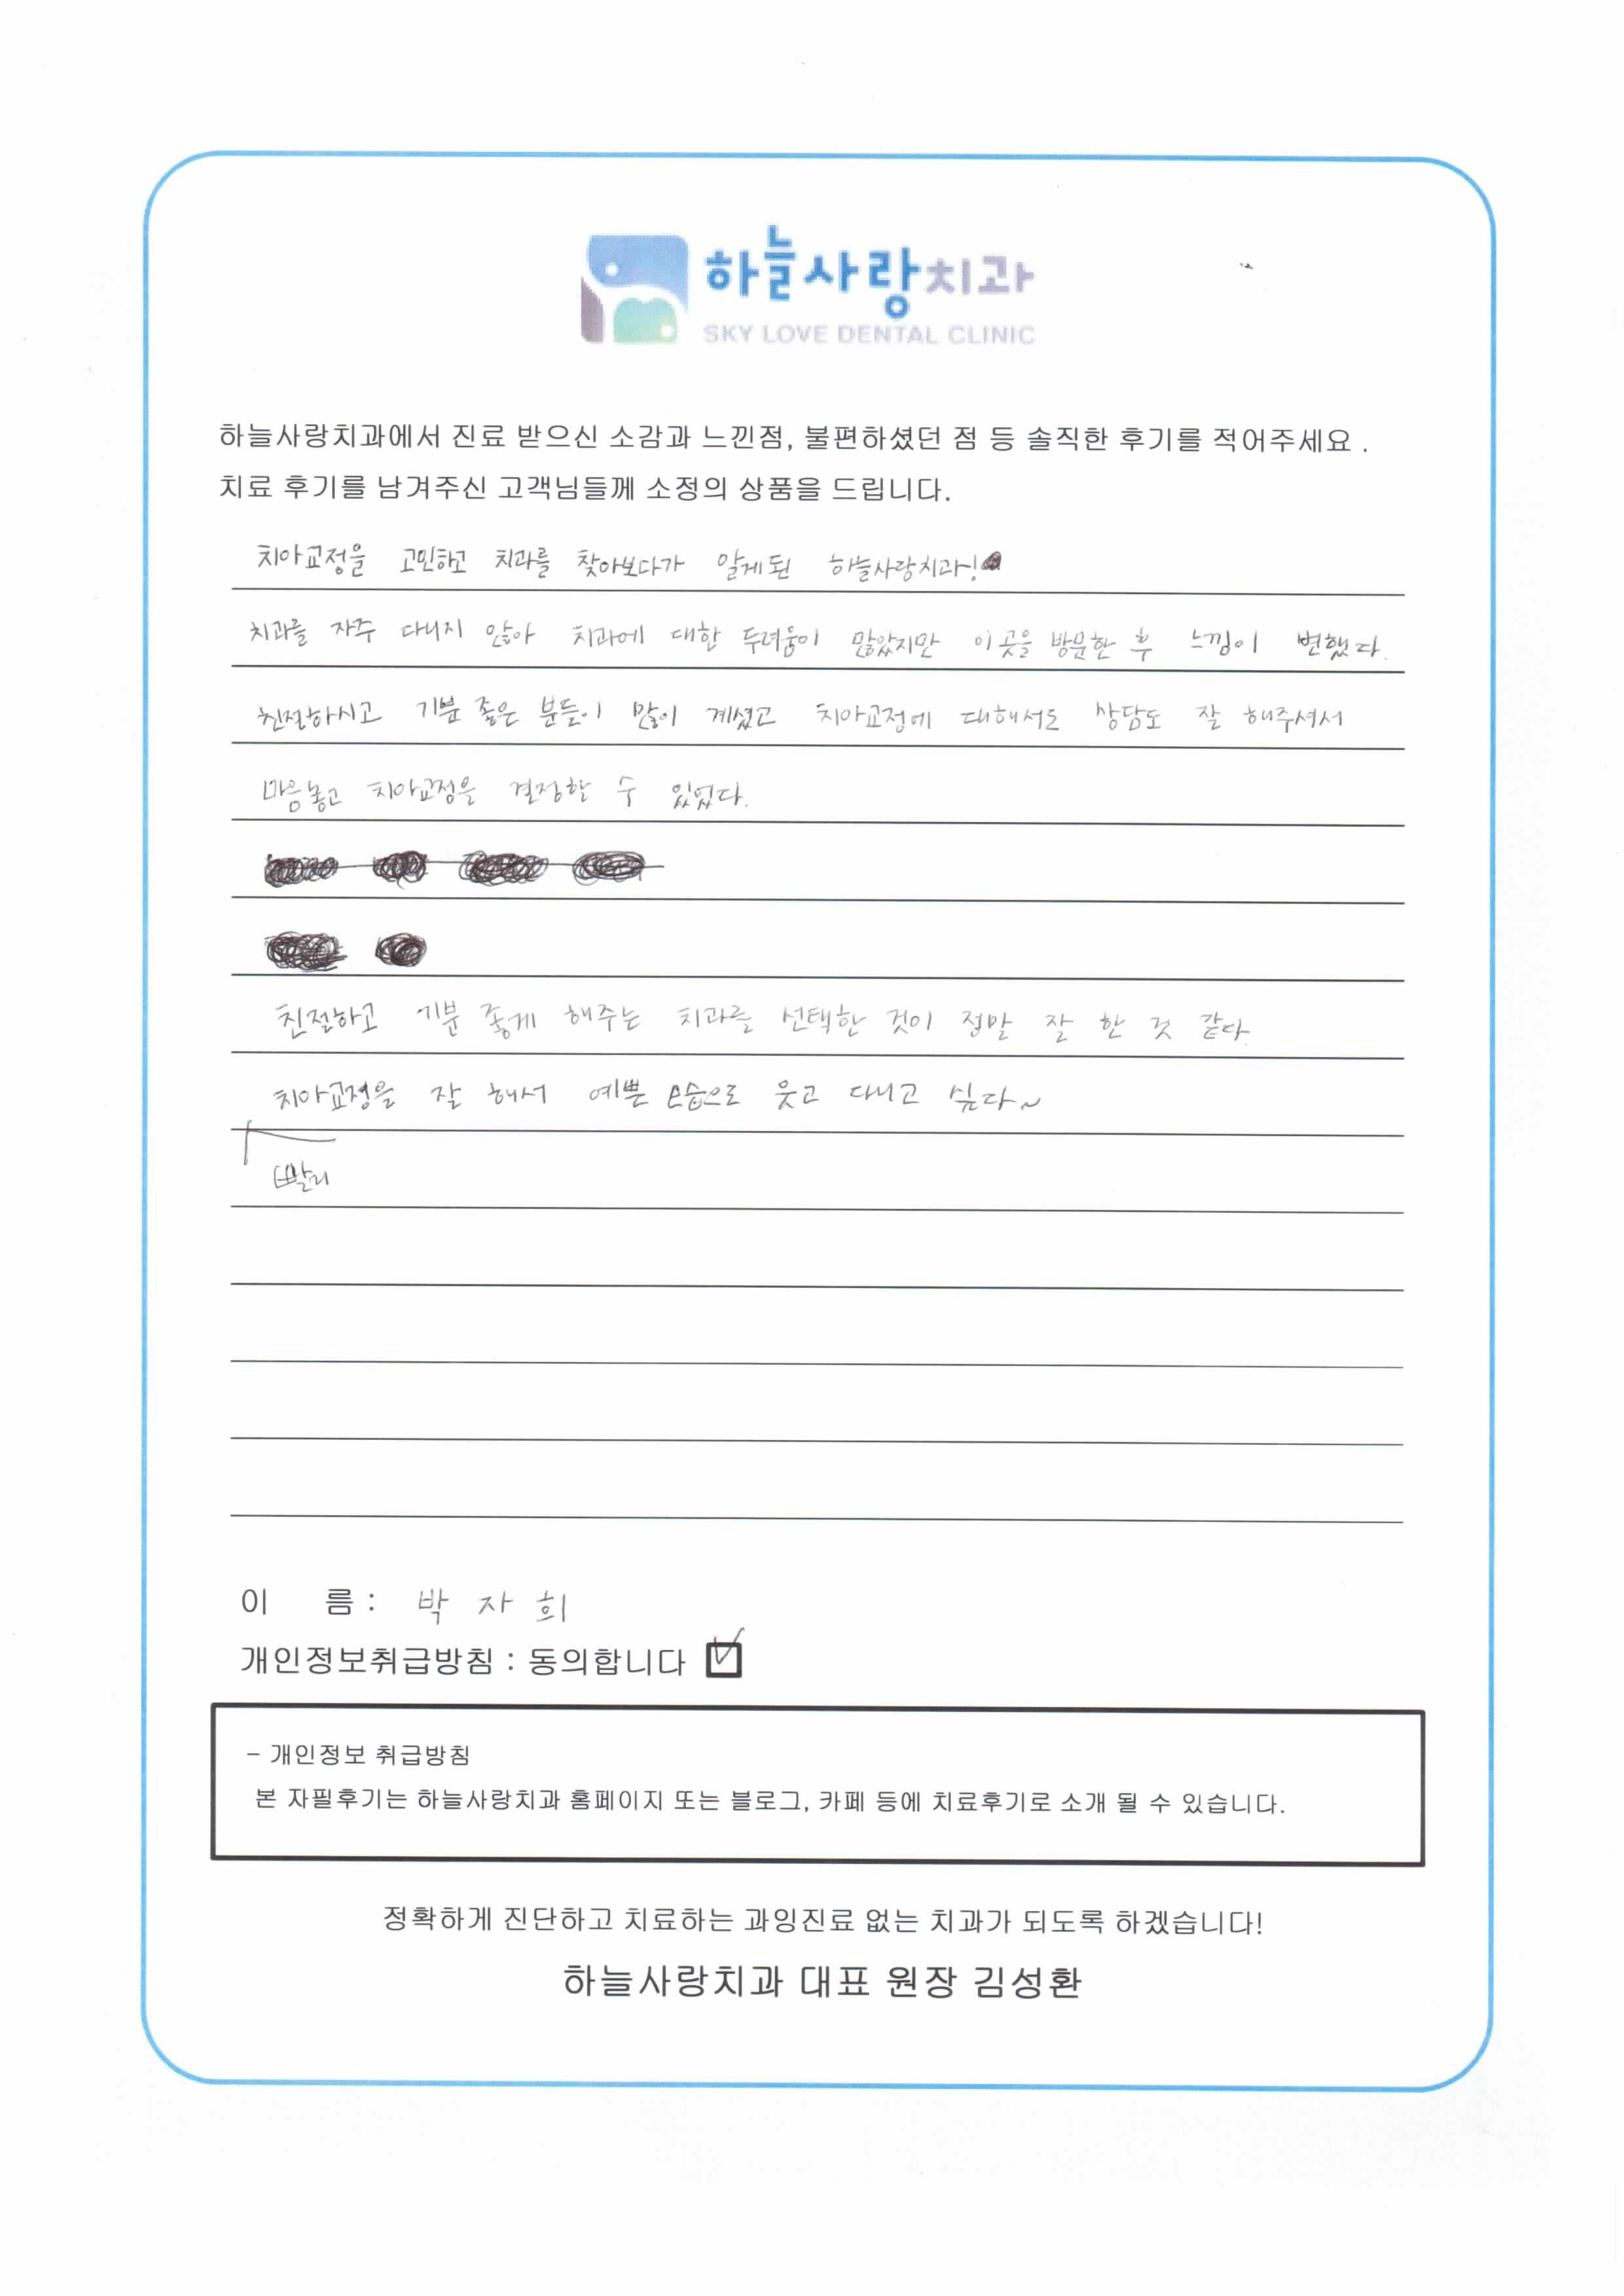 하늘사랑치과
SKY LOVE DENTAL CLINIC
하늘사랑치과에서 진료 받으신 소감과 느낀점, 불편하셨던 점 등 솔직한 후기를 적어주세요 .
치료 후기를 남겨주신 고객님들께 소정의 상품을 드립니다.
치아교정을 고민하고 치과를 찾아보다가 알게된 하늘사랑치과!
치과를 자주 다니지 않아 치과에 대한 두려움이 많았지만 이곳을 방문한 후 느낌이 변했다.
친절하시고 기분 좋은 분들이 많이 계셨고 치아교정에 대해서도 상담도 잘 해주셔서
마음놓고 치아교정을 결정할 수 있었다.
친절하고 기분 좋게 해주는 치과를 선택한 것이 정말 잘 한 것 같다.
치아교정을 잘 해서 예쁜 모습으로 웃고 다니고 싶다~
빨리
이 름 : 박 자 희
개인정보취급방침 : 동의합니다
- 개인정보 취급방침
본 자필후기는 하늘사랑치과 홈페이지 또는 블로그, 카페 등에 치료후기로 소개 될 수 있습니다.
정확하게 진단하고 치료하는 과잉진료 없는 치과가 되도록 하겠습니다!
하늘사랑치과 대표 원장 김성환